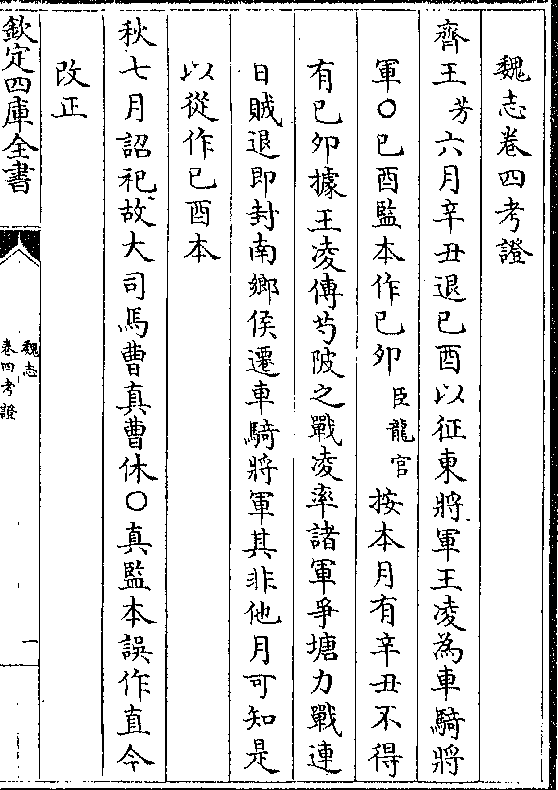 魏志卷四考證
齊王芳六月辛丑退已酉以征東將軍王凌為車騎將
軍○已酉監本作已卯臣龍官按本月有辛丑不得
有已卯據王凌傳芍陂之戰凌率諸軍爭塘力戰連
日賊退即封南鄉侯遷車騎將軍其非他月可知是
以從作已酉本
秋七月詔祀故大司馬曹真曹休○真監本誤作直今
改正
欽定四庫全書
魏志
卷四考證
一